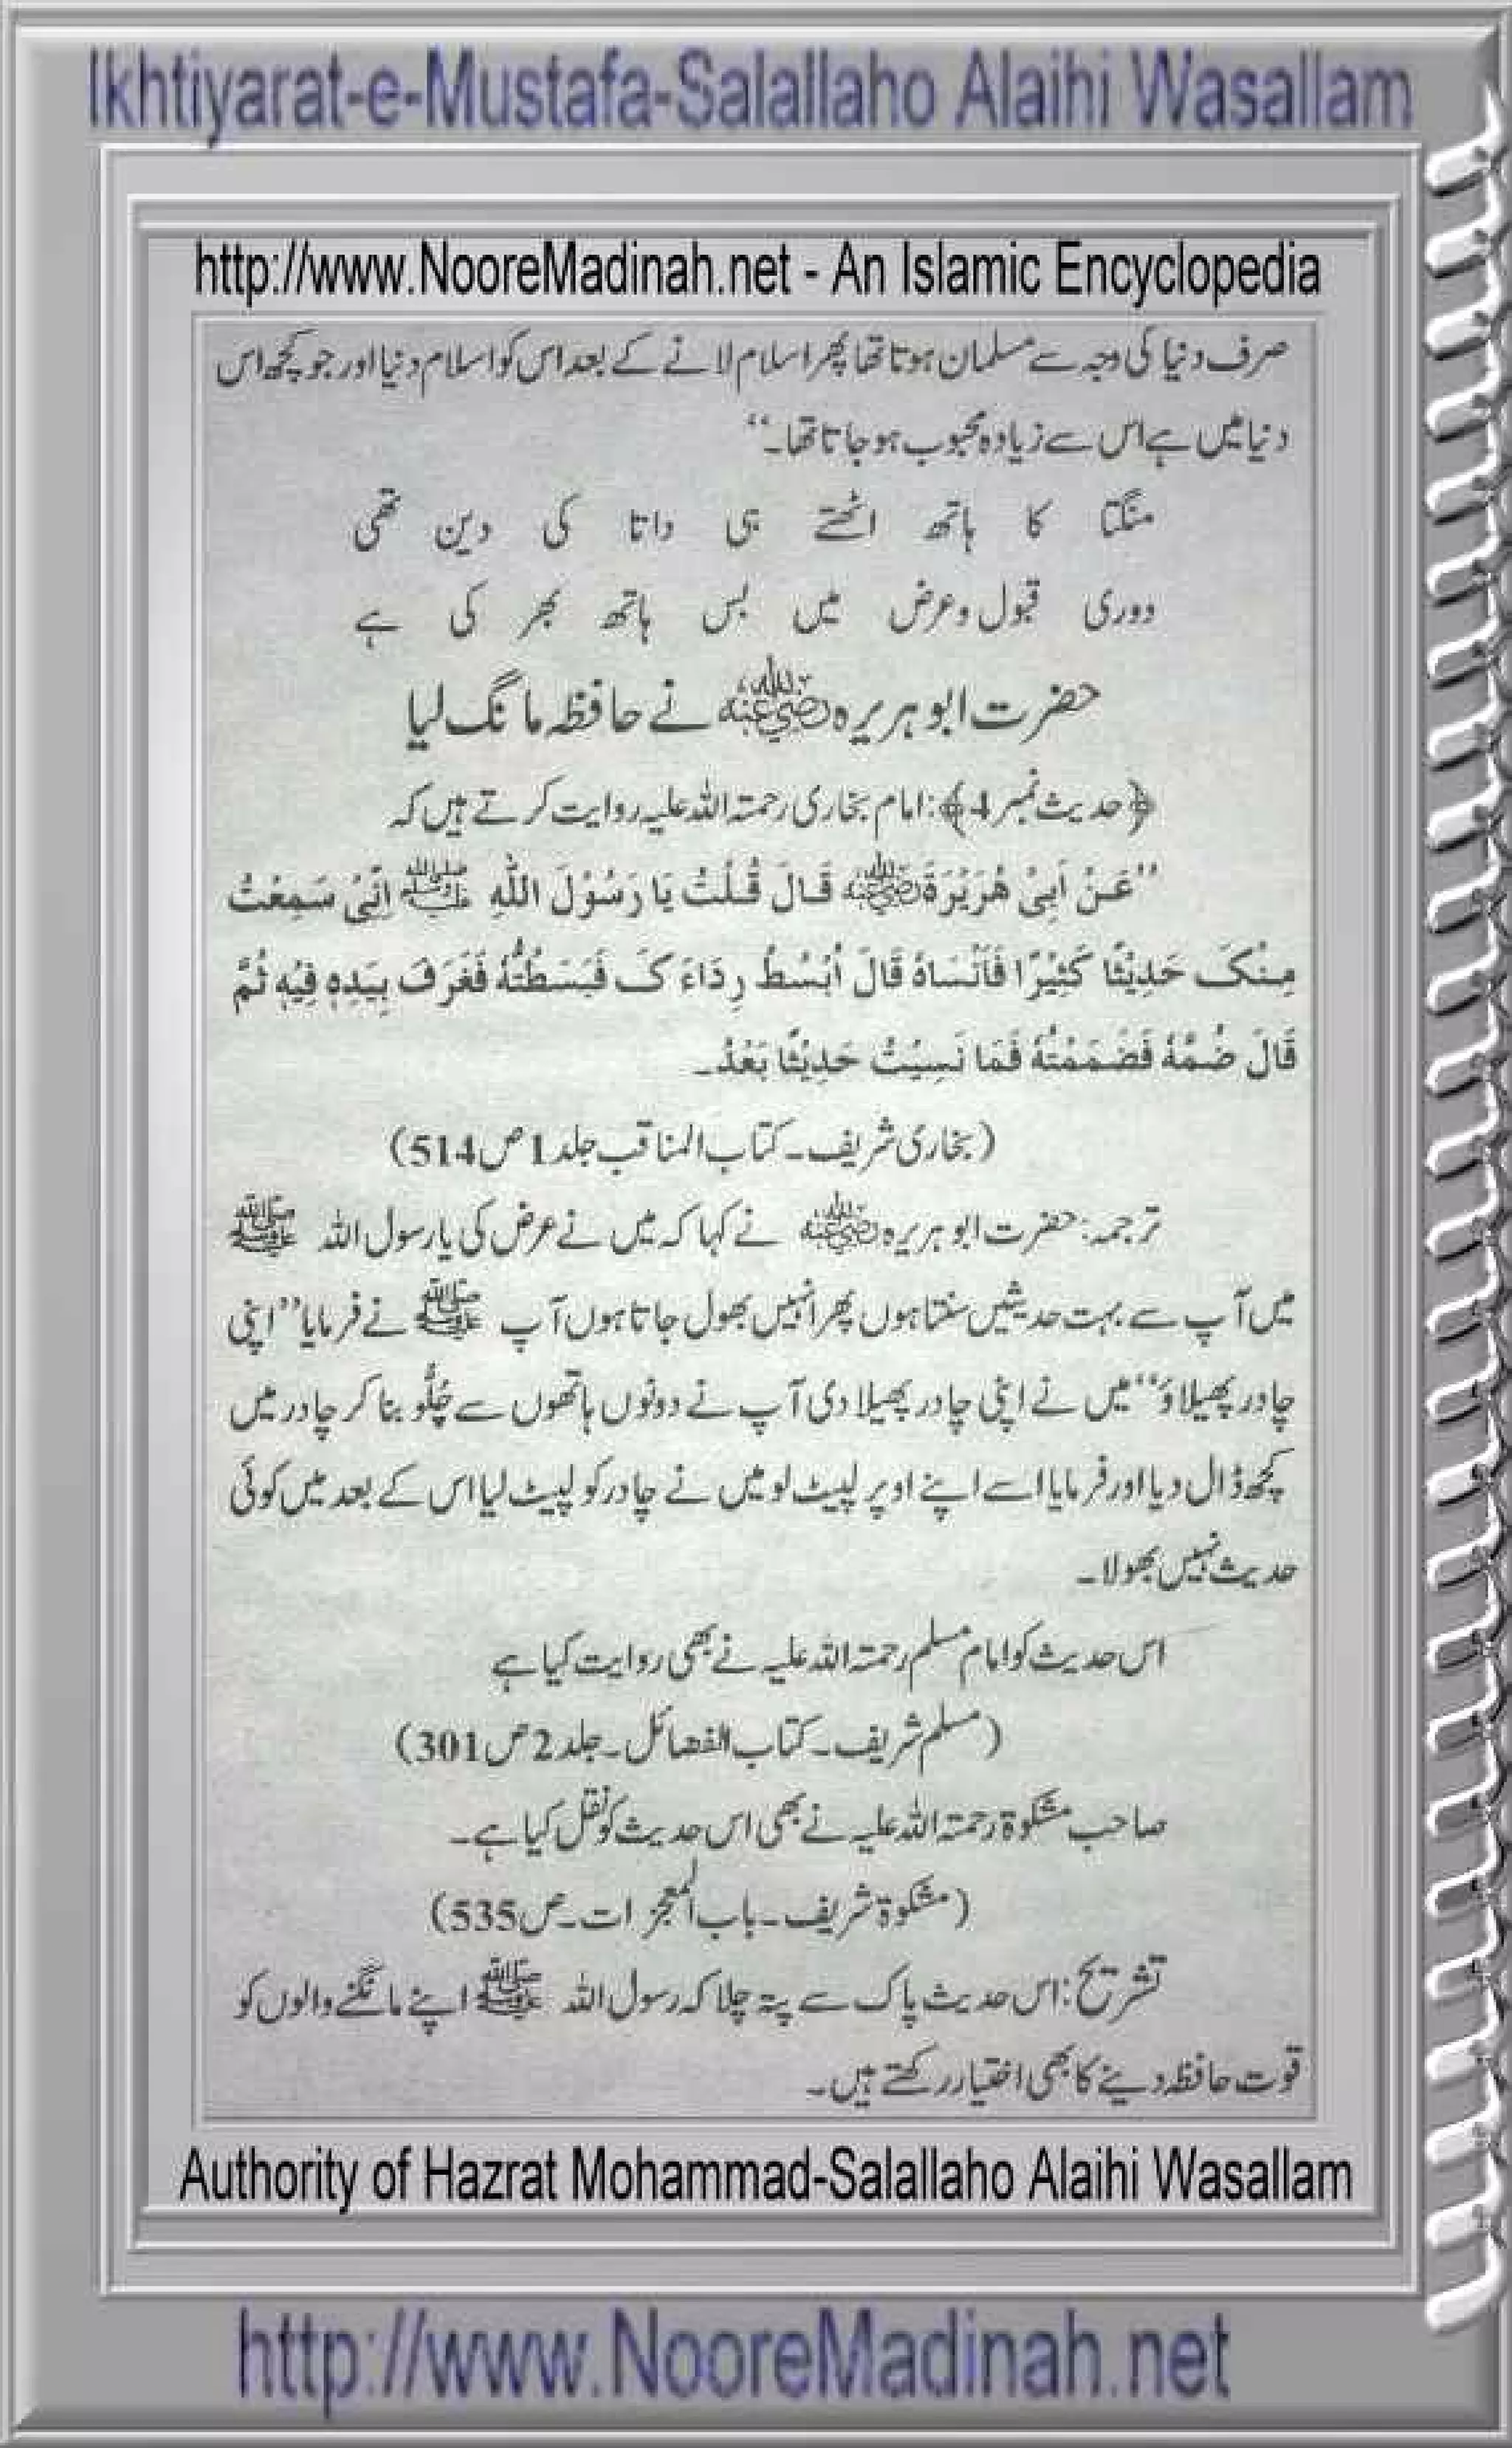 Ikhtiyarat-e-Mustafa-Salallaho Alaihi Wasallam
http://www.NooreMadinah.net - An Islamic Encyclopedia
صرف دنیا کی وجہ سے مسلمان ہوتا تھا پھر اسلام لانے کے بعد اس کو اسلام دنیا اور جو کچھ اس
دنیا میں ہے اس سے زیادہ محبوب ہو جاتا تھا۔‘‘
منگتا کا ہاتھ اٹھتے ہی داتا کی دین تھی
دوری قبول و عرض میں بس ہاتھ بھر کی ہے
حضرت ابو ہریرہ رضی اللہ عنہ نے حافظہ مانگ لیا
﴿حدیث نمبر 4﴾: امام بخاری رحمتہ اللہ علیہ روایت کرتے ہیں کہ
’’عَنْ اَبِیْ هُرَیْرَةَ رضی اللہ عنہ قَالَ قُلْتُ یَا رَسُوْلَ اللّٰهِ ﷺ اِنِّیْ سَمِعْتُ
مِنْکَ حَدِیْثًا کَثِیْرًا فَاَنْسَاهُ قَالَ اُبْسُطْ رِدَاءَ کَ فَبَسَطْتُّهٗ فَغَرَفَ بِیَدِهٖ فِیْهِ ثُمَّ
قَالَ ضُمَّهٗ فَضَمَمْتُهٗ فَمَا نَسِیْتُ حَدِیْثًا بَعْدُ۔
(بخاری شریف۔ کتاب المناقب جلد 1 ص 514)
ترجمہ: حضرت ابو ہریرہ رضی اللہ عنہ نے کہا کہ میں نے عرض کی یا رسول اللہ ﷺ
میں آپ سے بہت حدیثیں سنتا ہوں پھر انہیں بھول جاتا ہوں آپ ﷺ نے فرمایا ’’اپنی
چادر پھیلاؤ‘‘ میں نے اپنی چادر پھیلا دی آپ نے دونوں ہاتھوں سے چُلُّو بنا کر چادر میں
کچھ ڈال دیا اور فرمایا اسے اپنے اوپر لپیٹ لو میں نے چادر کو لپیٹ لیا اس کے بعد میں کوئی
حدیث نہیں بھولا۔
اس حدیث کو امام مسلم رحمتہ اللہ علیہ نے بھی روایت کیا ہے
(مسلم شریف۔ کتاب الفضائل۔ جلد 2 ص 301)
صاحب مشکوۃ رحمتہ اللہ علیہ نے بھی اس حدیث کو نقل کیا ہے۔
(مشکوۃ شریف۔ باب المعجزات۔ ص 535)
تشریح: اس حدیث پاک سے پتہ چلا کہ رسول اللہ ﷺ اپنے مانگنے والوں کو
قوت حافظہ دینے کا بھی اختیار رکھتے ہیں۔
Authority of Hazrat Mohammad-Salallaho Alaihi Wasallam
http://www.NooreMadinah.net